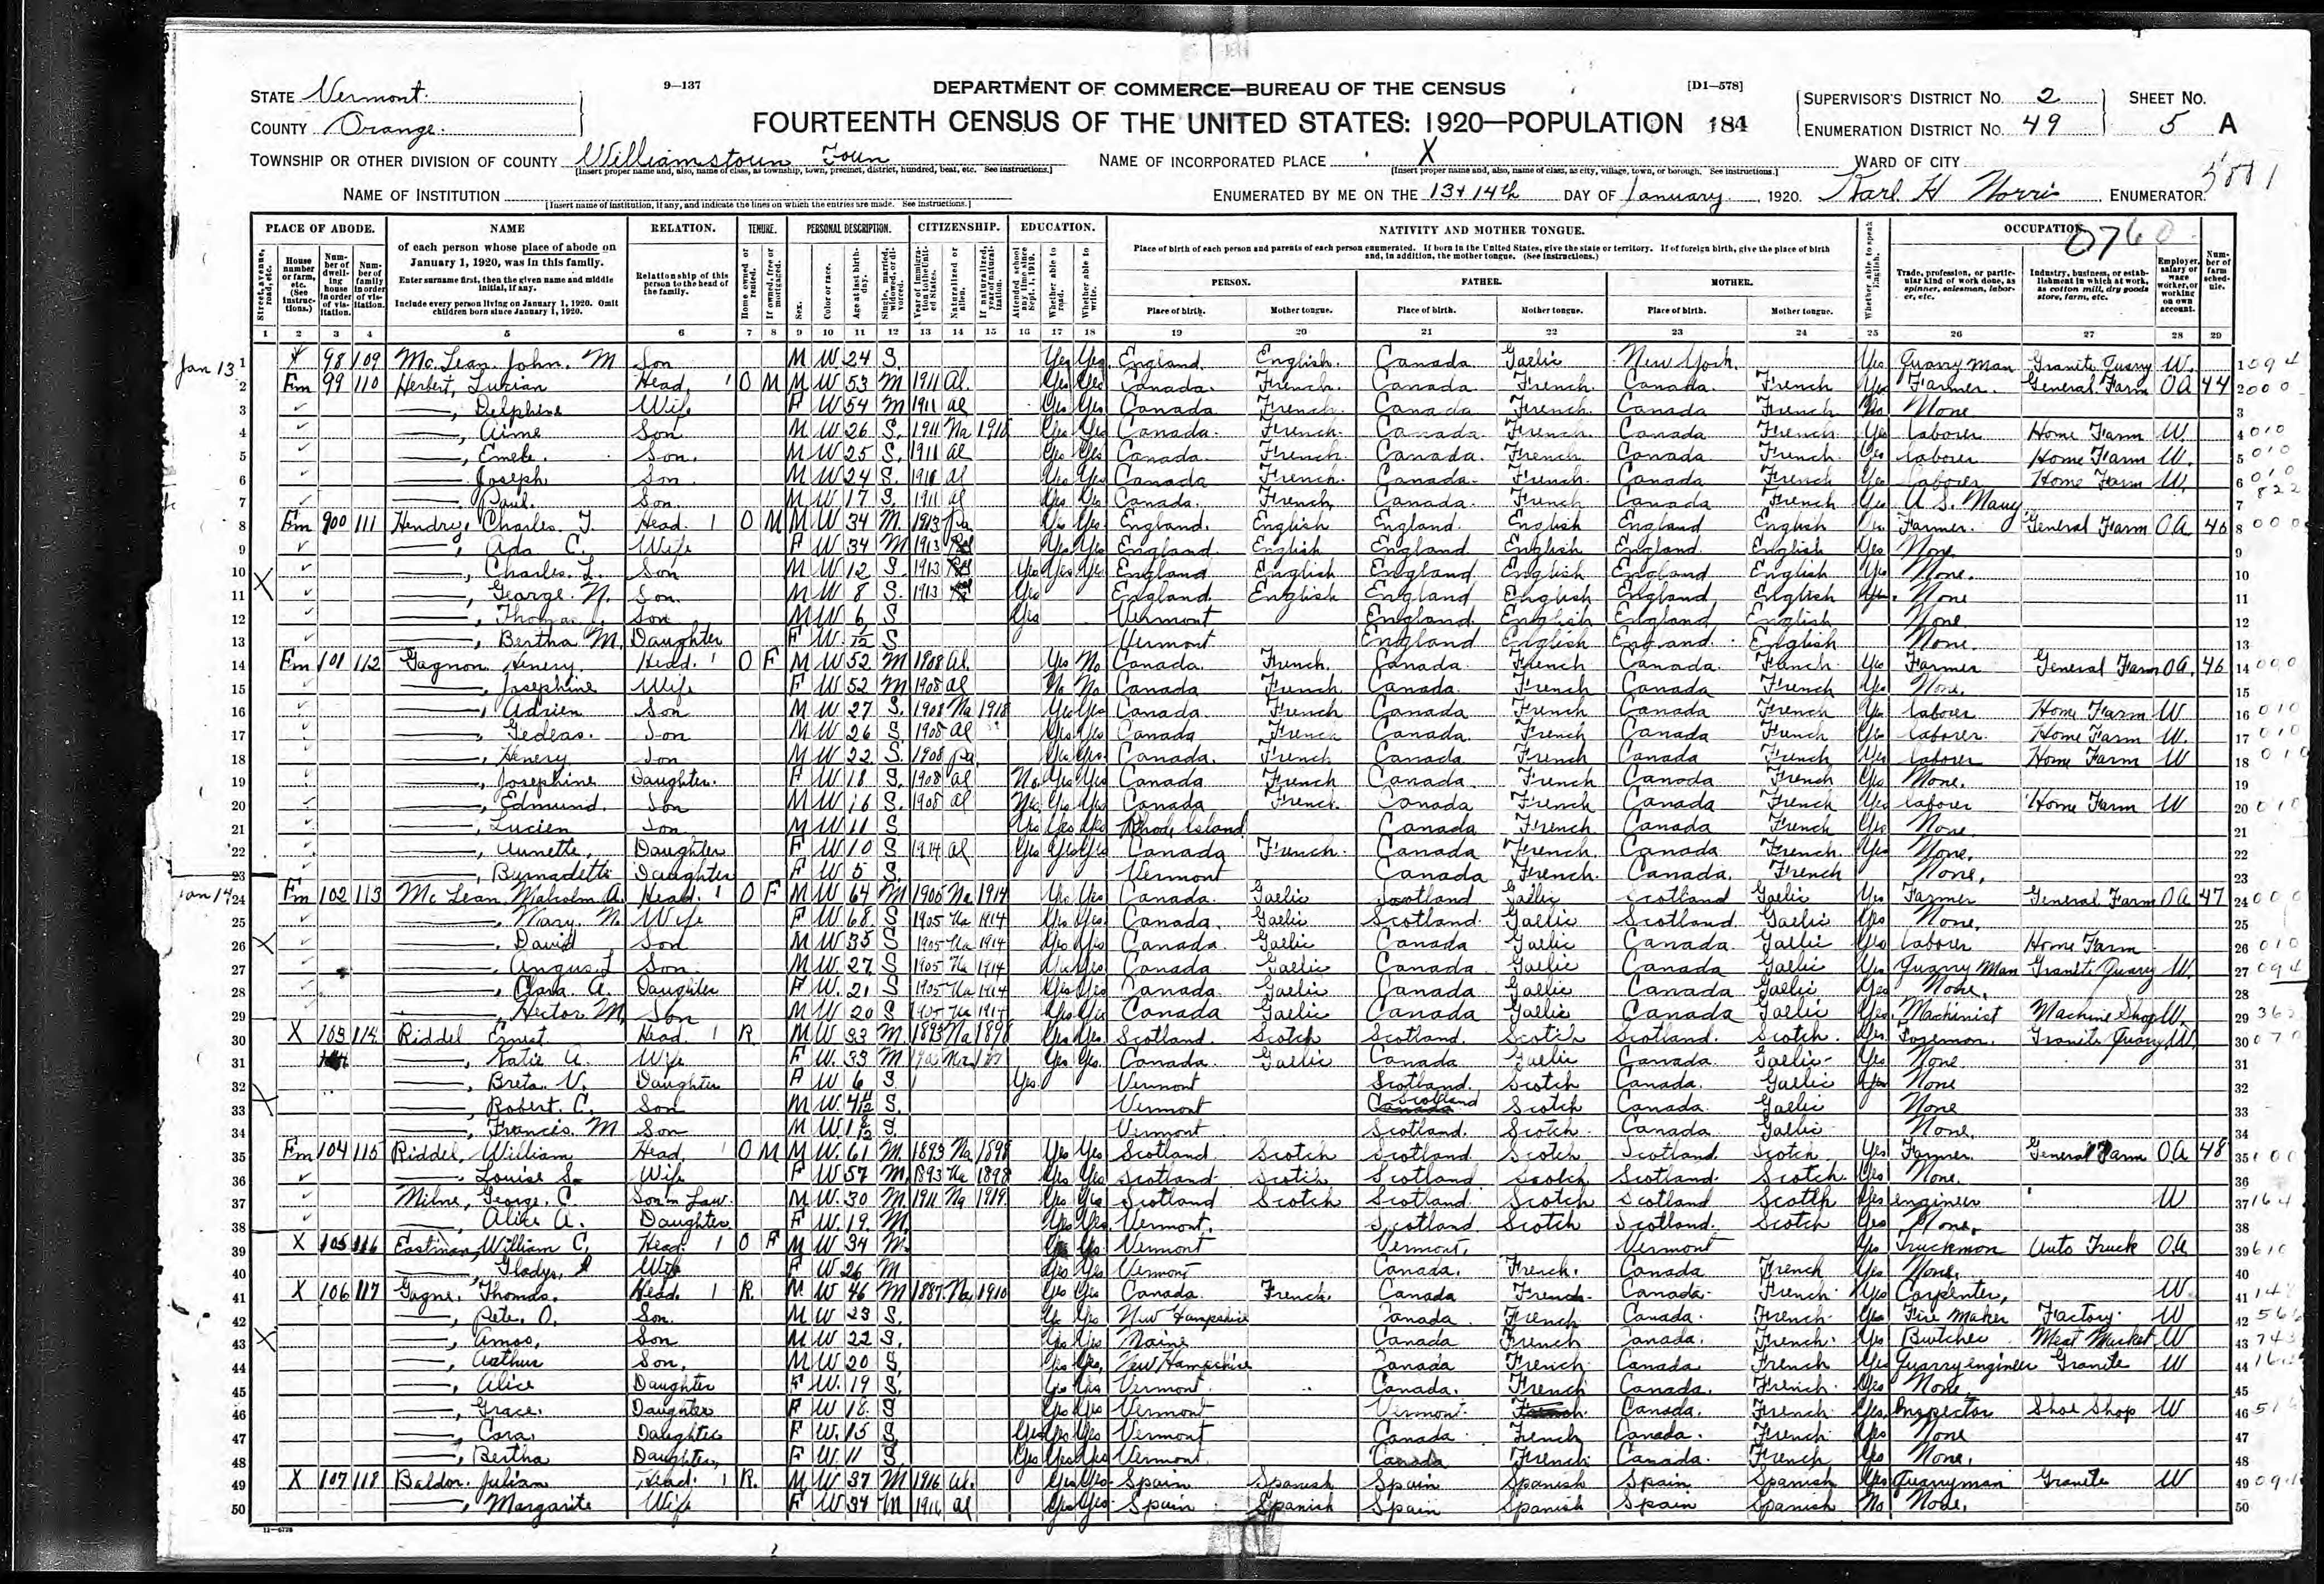 9—137
DEPARTMENT OF COMMERCE—BUREAU OF THE CENSUS
[D1—578]
STATE Vermont.
COUNTY Orange.
FOURTEENTH CENSUS OF THE UNITED STATES: 1920—POPULATION 184
SUPERVISOR'S DISTRICT No. 2
ENUMERATION DISTRICT No. 49
SHEET No. 5 A
TOWNSHIP OR OTHER DIVISION OF COUNTY Williamstown Town
[Insert proper name and, also, name of class, as township, town, precinct, district, hundred, beat, etc. See instructions.]
NAME OF INCORPORATED PLACE X
[Insert proper name and, also, name of class, as city, village, town, or borough. See instructions.]
WARD OF CITY
NAME OF INSTITUTION
[Insert name of institution, if any, and indicate the lines on which the entries are made. See instructions.]
ENUMERATED BY ME ON THE 13+14th DAY OF January, 1920. Karl H Norris, ENUMERATOR.
PLACE OF ABODE. NAME RELATION. TENURE. PERSONAL DESCRIPTION. CITIZENSHIP. EDUCATION. NATIVITY AND MOTHER TONGUE. OCCUPATION. 0760
of each person whose place of abode on January 1, 1920, was in this family.
Enter surname first, then the given name and middle initial, if any.
Include every person living on January 1, 1920. Omit children born since January 1, 1920.
Relationship of this person to the head of the family.
Place of birth of each person and parents of each person enumerated. If born in the United States, give the state or territory. If of foreign birth, give the place of birth and, in addition, the mother tongue. (See instructions.)
PERSON. FATHER. MOTHER.
Place of birth. Mother tongue. Place of birth. Mother tongue. Place of birth. Mother tongue.
1 2 3 4 5 6 7 8 9 10 11 12 13 14 15 16 17 18 19 20 21 22 23 24 25 26 27 28 29
Jan 13 1 98 109 Mc Lean, John. M Son M W 24 S Yes Yes England. English. Canada Gaelic New York. Yes Quarry man Granite Quarry W. 1
2 Fm 99 110 Herbert, Lucian Head 1 O M M W 53 M 1911 Al. Yes Yes Canada. French. Canada French. Canada. French Yes Farmer. General Farm OA 44 2
3 ——, Delphine Wife F W 54 M 1911 al Yes Yes Canada French. Canada French. Canada French No None 3
4 ——, Aime Son M W 26 S. 1911 Na Yes Yes Canada. French. Canada French. Canada French Yes laborer Home Farm W. 4 010
5 ——, Son. M W 25 S. 1911 al Yes Yes Canada. French. Canada. French. Canada French. Yes laborer Home Farm W. 5 010
6 —— Joseph Son M W 24 S. al Yes Yes Canada French. Canada. French. Canada French Yes laborer Home Farm W. 6 010
7 —— Paul. Son M W 17 S. 1911 al Yes Yes Canada. French Canada. French Canada French Yes U. S. Navy 7 822
8 Fm 111 Hendry, Charles. T. Head. 1 O M M W 34 M. 1913 pa Yes Yes England. English England. English England English Farmer. General Farm OA 8 000
9 ——, Ada C. Wife F W 34 M 1913 Yes Yes England. English England English England. English Yes None 9
10 ——, Charles. L. Son M W 12 S. 1913 Yes Yes Yes England English England English England English Yes None. 10
11 ——, George. N. Son. M W 8 S. 1913 Yes England. English England English England English None 11
12 ——, Thomas Son M W 6 S Yes Vermont England English England English None 12
13 ——, Bertha M. Daughter F W S Vermont England English England. English None. 13
14 Fm 101 112 Gagnon Henery. Head. 1 O F M W 52 M 1908 al. Yes No Canada. French. Canada French Canada. French Yes Farmer General Farm OA. 46 14 000
15 ——, Josephine Wife F W 52 M 1908 al No No Canada French Canada. French Canada French Yes None. 15
16 ——, Adrien Son M W 27 S. 1908 Na 1918 Yes Yes Canada French Canada French Canada French Yes laborer Home Farm W 16 010
17 ——, Gedeas. Son M W 26 S. 1908 al Yes Yes Canada French Canada. French Canada French Yes laborer. Home Farm W. 17 010
18 ——, Henery Son M W 22 S. 1908 pa Yes Yes Canada. French Canada French Canada French Yes laborer Home Farm W 18 010
19 ——, Josephine Daughter. F W 18 S. 1908 al No Yes Yes Canada French Canada. French Canada French Yes None. 19
20 ——, Edmund. Son M W 16 S. 1908 al No Yes Yes Canada French. Canada French Canada French Yes laborer Home Farm W 20 010
21 ——, Lucien Son M W 11 S Yes Yes Yes Rhode Island Canada French Canada French Yes None 21
22 ——, Annette, Daughter F W 10 S 1914 al Yes Yes Yes Canada French. Canada French. Canada French. Yes None. 22
23 ——, Bernadette Daughter F W 5 S. Vermont Canada French. Canada. French None. 23
Jan 14 24 Fm 102 113 Mc Lean, Malcolm A. Head. 1 O F M W 64 M 1905 Na 1914 Yes Yes Canada. Gaelic Scotland Gaelic Scotland Gaelic Yes Farmer General Farm OA 47 24 000
25 ——, Mary. N. Wife F W 68 S 1905 Na 1914 Yes Yes Canada. Gaelic Scotland. Gaelic Scotland. Gaelic Yes None. 25
26 ——, David Son M W 35 S 1905 Na 1914 Yes Yes Canada. Gaelic Canada Gaelic Canada. Gaelic Yes laborer Home Farm 26 010
27 ——, Angus. J Son. M W. 27 S 1905 Na 1914 Yes Yes Canada Gaelic Canada. Gaelic Canada Gaelic Yes Quarry Man Granite Quarry W. 27 094
28 ——, Clara. A. Daughter F W. 21 S 1905 Na 1914 Yes Yes Canada. Gaelic Canada Gaelic Canada Gaelic Yes None. 28
29 ——, Hector M. Son M W 20 S 1905 Na 1914 Yes Yes Canada Gaelic Canada Gaelic Canada Gaelic Yes Machinist Machine Shop W. 29
30 X 103 114 Riddel Ernest Head. 1 R. M W 33 M. 1893 Na 1898 Yes Yes Scotland Scotch Scotland. Scotch Scotland. Scotch. Yes Foreman. Granite Quarry W. 30 070
31 ——, Katie A. Wife F W. 33 M Yes Yes. Canada. Gaelic Canada Gaelic Canada. Gaelic Yes None 31
32 ——, Breta. V. Daughter F W 6 S. Yes. Vermont Scotland. Scotch Canada. Gaelic None 32
33 ——, Robert. C. Son M W. S. Vermont Scotland Scotch Canada. Gaelic None 33
34 ——, Francis. M Son M W. S. Vermont Scotland. Scotch. Canada. Gaelic None. 34
35 Fm 104 115 Riddel, William Head, 1 O M M W. 61 M. 1893 Na 1898 Yes Yes Scotland Scotch Scotland. Scotch Scotland. Scotch Yes Farmer. General Farm OA 48 35
36 ——, Louise S. Wife F W 57 M. 1893 Na 1898 Yes Yes Scotland. Scotch Scotland Scotch Scotland. Scotch. Yes None. 36
37 Milne, George. C. Son in Law. M W. 30 M 1911 Na 1919. Yes Yes Scotland Scotch Scotland. Scotch Scotland Scotch Yes engineer W 37 164
38 ——, Alice A. Daughter F W. 19. M. Yes Yes Vermont. Scotland Scotch Scotland. Scotch Yes None. 38
39 X 105 116 Eastman, William C. Head. 1 O F M W 34 M. Yes Vermont Vermont. Vermont Yes Truckman Auto Truck OA 39 610
40 ——, Gladys. Wife F W 26 M Yes Yes Vermont Canada. French. Canada French Yes None. 40
41 X 106 117 Gagne, Thomas. Head. 1 R. M W 46 M 1887 Na 1910 Yes Yes Canada. French. Canada French. Canada. French. Yes Carpenter, W. 41
42 ——, Pete, O. Son. M W 23 S. Yes New Hampshire Canada. French Canada. French. Yes Factory. W 42
43 ——, Amos, Son M W 22 S. Yes Yes Maine Canada French Canada. French. Yes Butcher Meat Market W 43
44 ——, Arthur Son, M W 20 S Yes Yes, New Hampshire Canada French. Canada French Yes Quarry engineer Granite W 44
45 ——, Alice Daughter F W. 19 S. Yes Yes Vermont. Canada. French Canada. French. Yes None. 45
46 ——, Grace. Daughter F W 18. S Yes Yes Vermont Vermont. French. Canada. French Yes. Inspector Shoe Shop W 46
47 ——, Cora, Daughter F W. 15 S. Yes Yes Yes Vermont Canada. French Canada. French. Yes None 47
48 ——, Bertha Daughter, F W. 11 S. Yes Yes Yes Vermont. Canada French. Canada. French Yes None. 48
49 X 107 118 Baldor. Julian Head. 1 R. M W 37 M 1916 al. Yes Yes Spain Spanish Spain Spanish Spain Spanish Yes Quarryman Granite W 49
50 ——, Margarite Wife F W 34 M 1916 al Yes Yes Spain Spanish Spain Spanish Spain Spanish No None. 50
11—6728